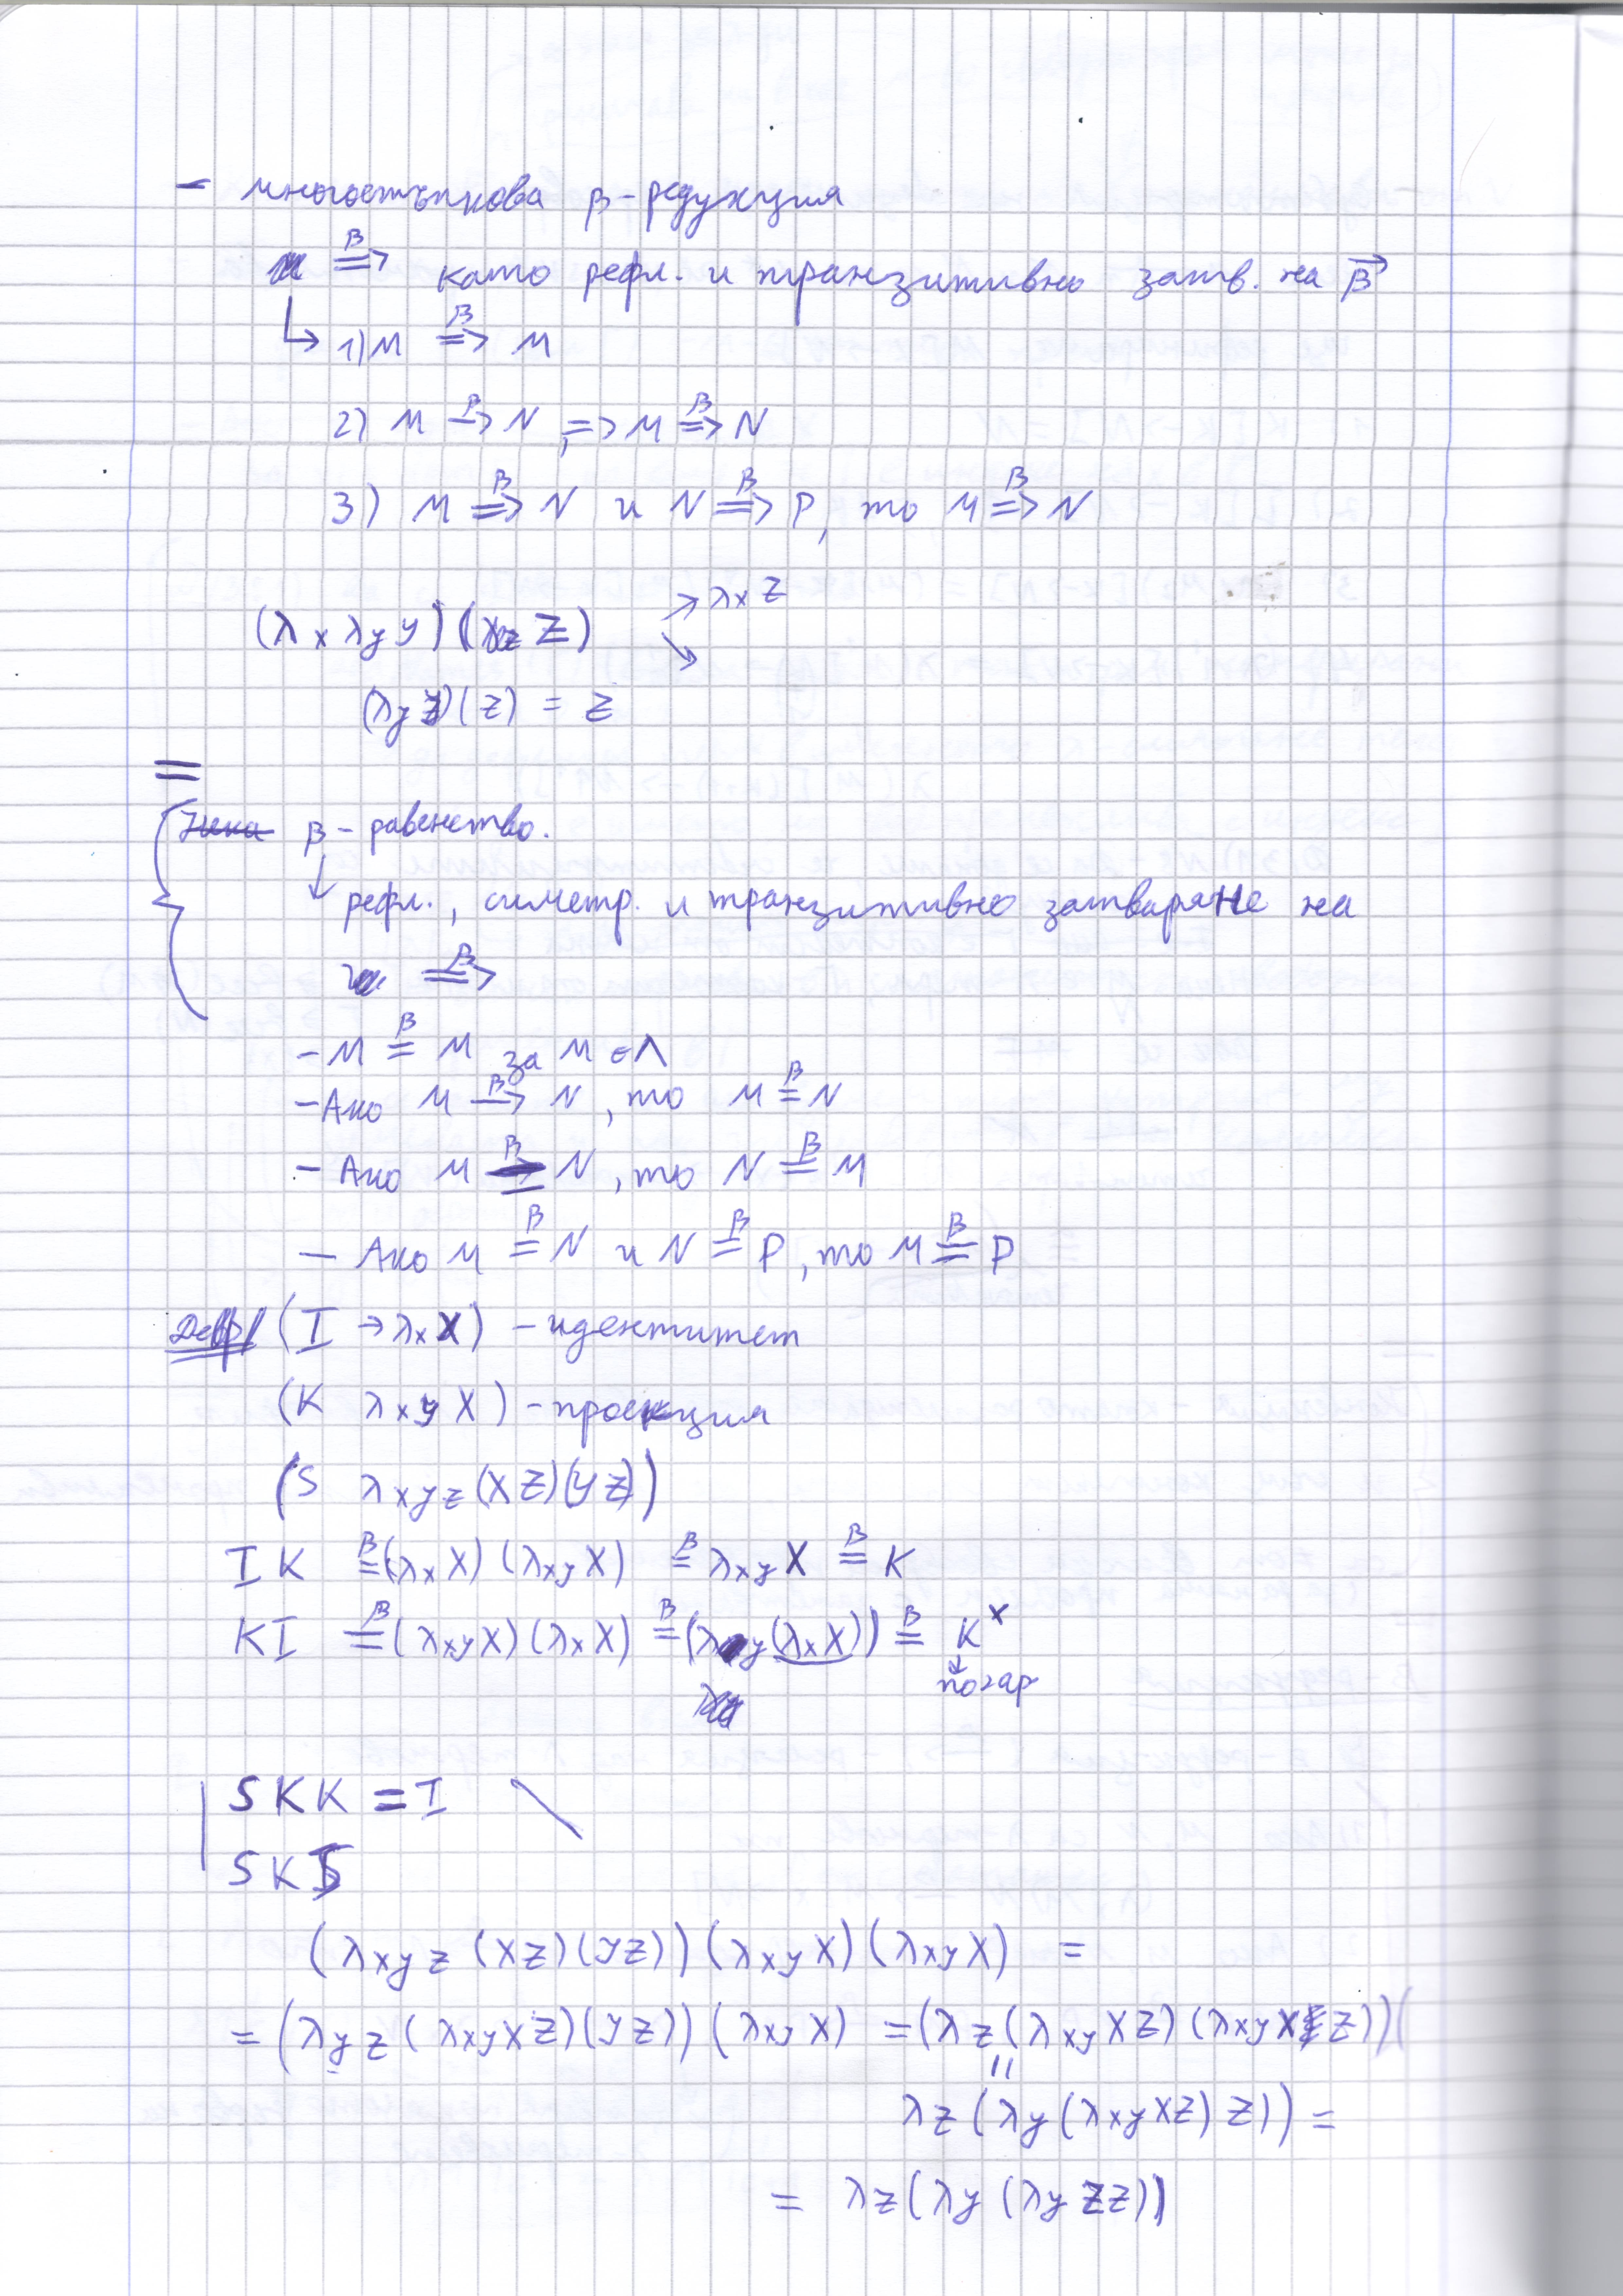 – многостъпкова β-редукция
β⇒ като рефл. и транзитивно затв. на β→
↳ 1) M β⇒ M
2) M β→ N, => M β⇒ N
3) M β⇒ N и N β⇒ P, то M β⇒ N
(λx λy y) (λz z) ↗ λx z ↘
(λy y)(z) = z
=
Нека β – равенство.
↓ рефл., симетр. и транзитивно затваряне на
β⇒
– M β= M за M ∈ Λ
– Ако M β→ N, то M β= N
– Ако M β= N, то N β= M
– Ако M β= N и N β= P, то M β= P
Деф/ (I → λx x) – идентитет
(K λxy x) – проекция
(S λxyz (xz)(yz))
I K β= (λx x) (λxy x) β= λxy x β= K
K I β= (λxy x) (λx x) β= (λy (λx x)) β= K*
S K K = I
S K
(λxyz (xz)(yz)) (λxy x) (λxy x) =
= (λyz (λxy x z)(yz)) (λxy x) = (λz (λxy x z) (λxy x z)) (
=
λz (λy (λxy x z) z)) =
= λz (λy (λy z z))